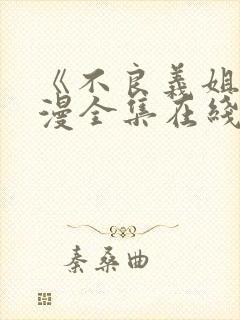 《不良義姐
漫全集在綫
秦桑曲